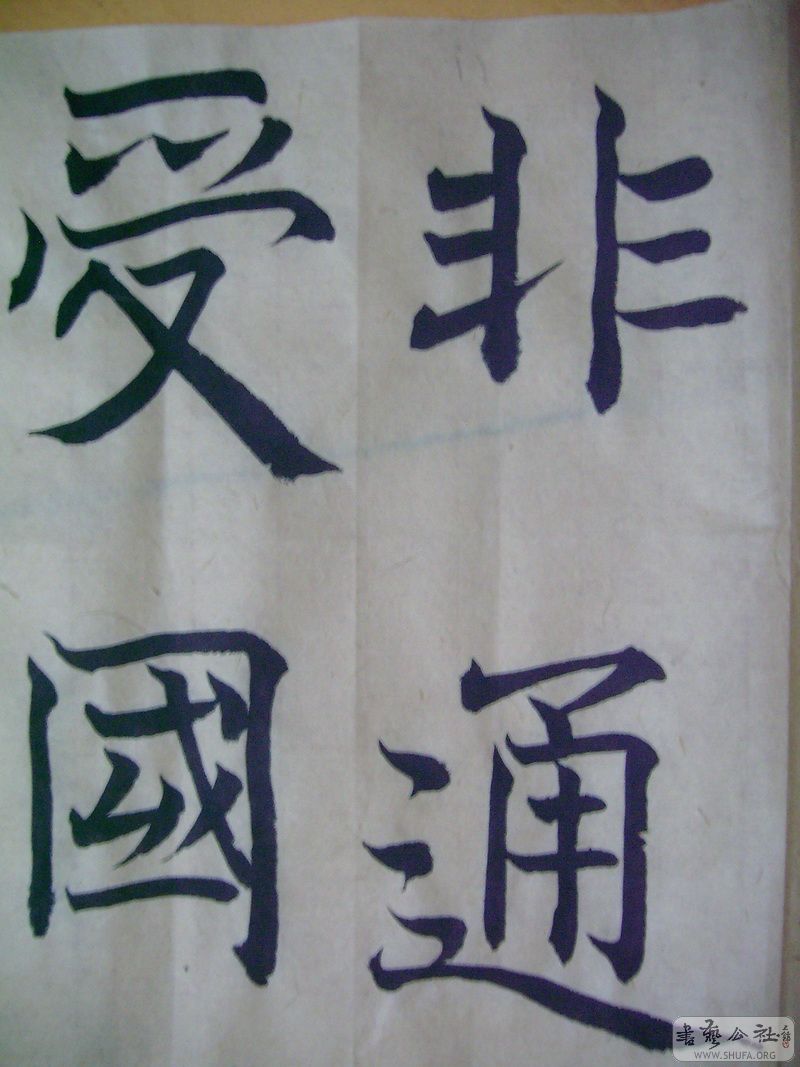 非通
受國
書藝公社
WWW.SHUFA.ORG